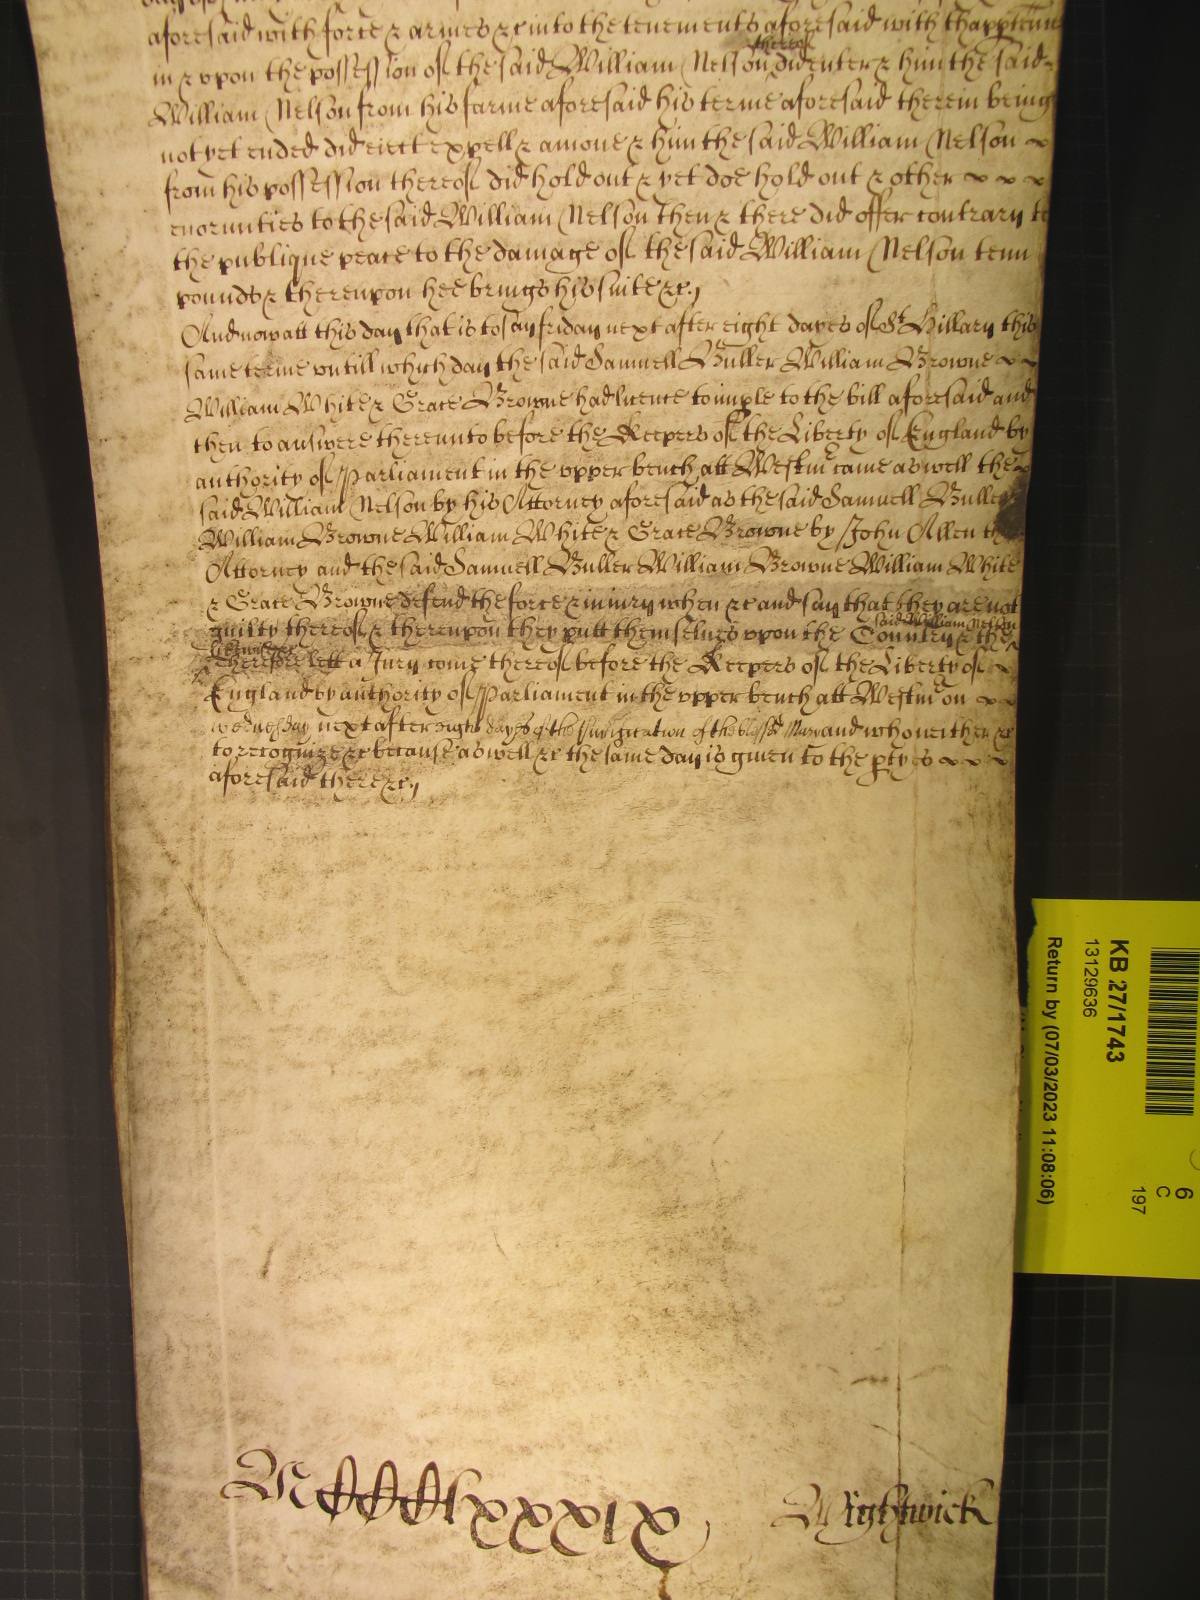 aforesaid with force & armes &c into the tenements aforesaid with thapptenn
thereof
in & vpon the possession of the said William Nelson did enter & him the said
William Nelson from his farme aforesaid his terme aforesaid therein being
not yet ended did eiect expell & amove & him the said William Nelson
from his possession thereof did hold out & yet doe hold out & other
enormities to the said William Nelson then & there did offer contrary to
the publique peace to the damage of the said William Nelson tenn
pounds & thereupon hee brings his suite &c.
And now att this day that is to say friday next after eight dayes of St Hillary this
same terme vntill which day the said Samuell Buller William Browne
William White & Grace Browne had licence to imple to the bill aforesaid and
then to answere thereunto before the Keepers of the Liberty of England by
authority of Parliament in the vpper bench att Westm came aswell the
said William Nelson by his Attorney aforesaid as the said Samuell Buller
William Browne William White & Grace Browne by John Allen th
Attorney and the said Samuell Buller William Browne William White
& Grace Browne defend the force & iniury when &c and say that they are not
said William Nelson
guilty thereof & thereupon they putt themselues vpon the Country & the
likewise &c
Therefore lett a Jury come thereof before the Keepers of the Liberty of
England by authority of Parliament in the vpper bench att Westm on
wednesday next after eight dayes of the Purification of the blessed Mary and who neither &c
to recognize &c because aswell &c the same day is giuen to the ptyes
aforesaid there &c.
MCCCClxxxix
Wightwick
KB 27/1743
13129636
Return by (07/03/2023 11:08:06)
6
C
197